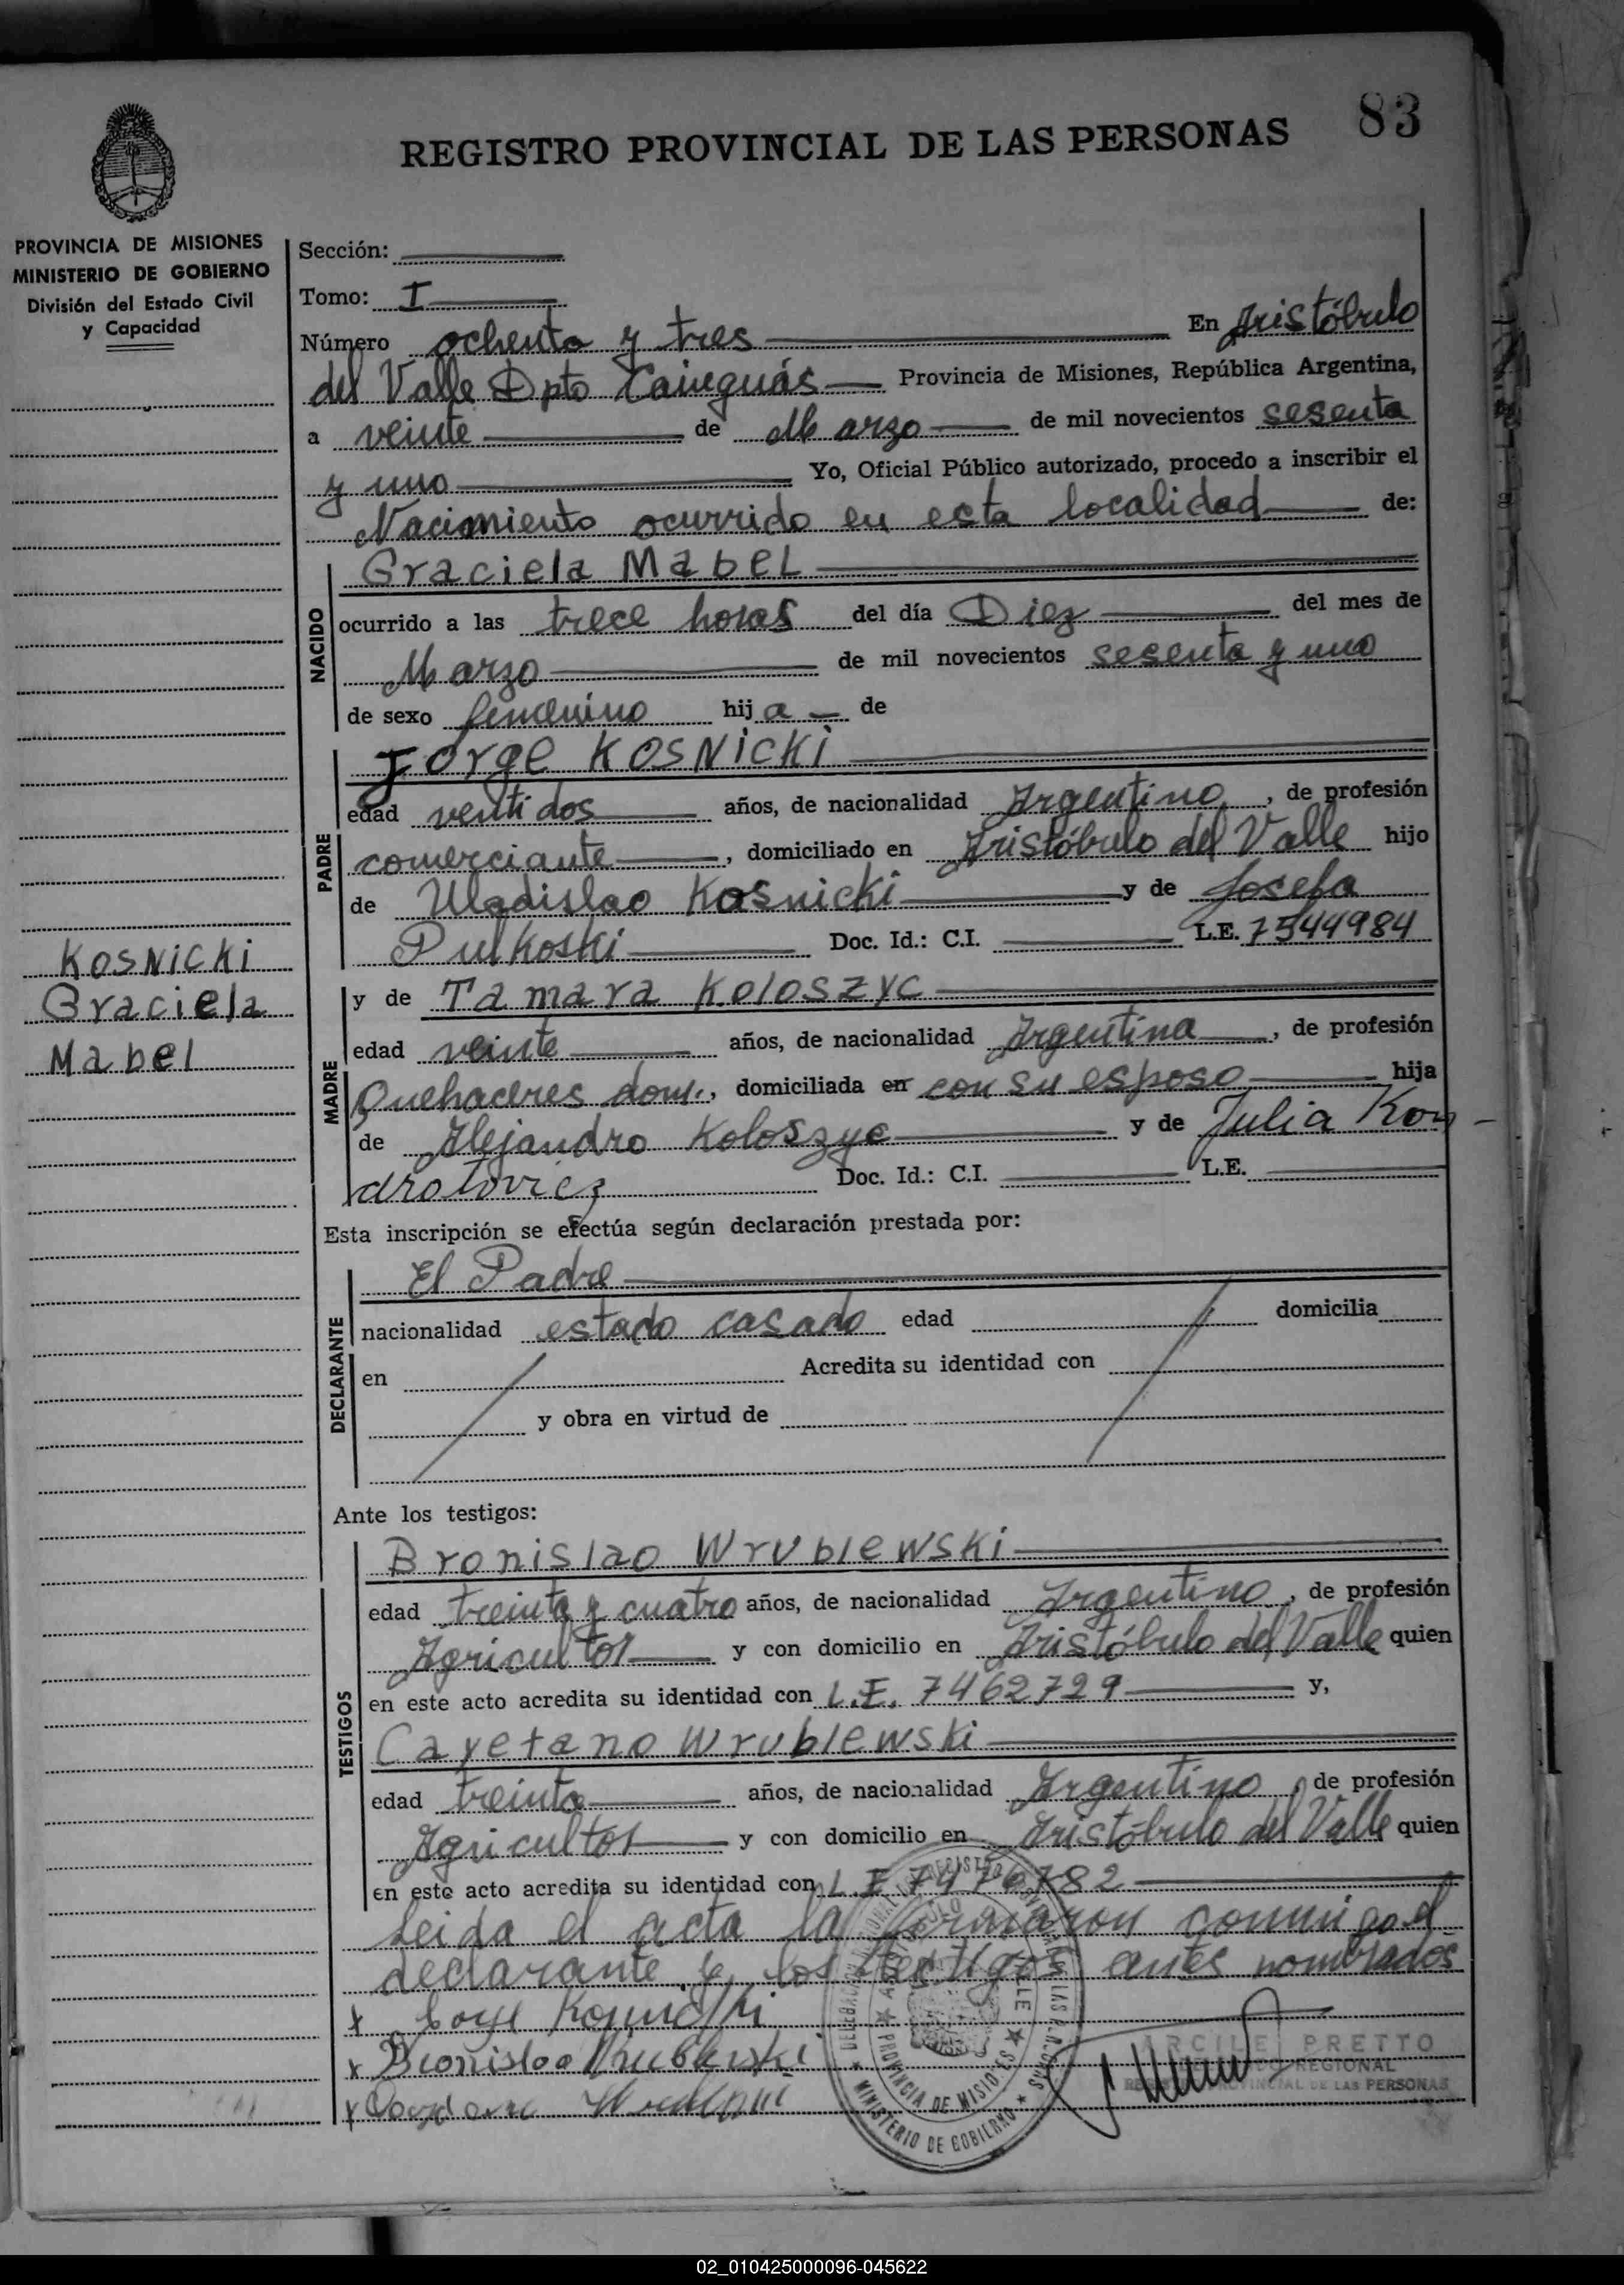 83
REGISTRO PROVINCIAL DE LAS PERSONAS
PROVINCIA DE MISIONES
MINISTERIO DE GOBIERNO
División del Estado Civil
y Capacidad
Sección:
Tomo: I
Número ochenta y tres En Aristóbulo
del Valle Dpto Cainguás Provincia de Misiones, República Argentina,
a veinte de Marzo de mil novecientos sesenta
y uno Yo, Oficial Público autorizado, procedo a inscribir el
Nacimiento ocurrido en esta localidad de:
NACIDO
Graciela Mabel
ocurrido a las trece horas del día Diez del mes de
Marzo de mil novecientos sesenta y uno
de sexo femenino hija de
PADRE
Jorge KOSNicki
edad ventidos años, de nacionalidad Argentino, de profesión
comerciante, domiciliado en Aristóbulo del Valle hijo
de Uladislao Kosnicki y de Josefa
Pulkoski Doc. Id.: C.I. L.E. 7544984
KOSNicki
Graciela
Mabel
MADRE
y de Tamara Koloszyc
edad veinte años, de nacionalidad Argentina, de profesión
Quehaceres dom., domiciliada en con su esposo hija
de Alejandro Koloszyc y de Julia Kon-
drotovicz Doc. Id.: C.I. L.E.
Esta inscripción se efectúa según declaración prestada por:
DECLARANTE
El Padre
nacionalidad estado casado edad domicilia
en Acredita su identidad con
y obra en virtud de
Ante los testigos:
TESTIGOS
Bronislao Wrublewski
edad treinta y cuatro años, de nacionalidad Argentino, de profesión
Agricultor y con domicilio en Aristóbulo del Valle quien
en este acto acredita su identidad con L.E. 7462729 y,
Cayetano Wrublewski
edad treinta años, de nacionalidad Argentino, de profesión
Agricultor y con domicilio en Aristóbulo del Valle quien
en este acto acredita su identidad con L.E 7476782
Leida el acta la firmaron conmigo el
declarante y los testigos antes nombrados
x
x Bronislao Wrublewski
x
PROVINCIA DE MISIONES
MINISTERIO DE GOBIERNO
ARCILE PRETTO
REGIONAL
PROVINCIAL DE LAS PERSONAS
02_010425000096-045622